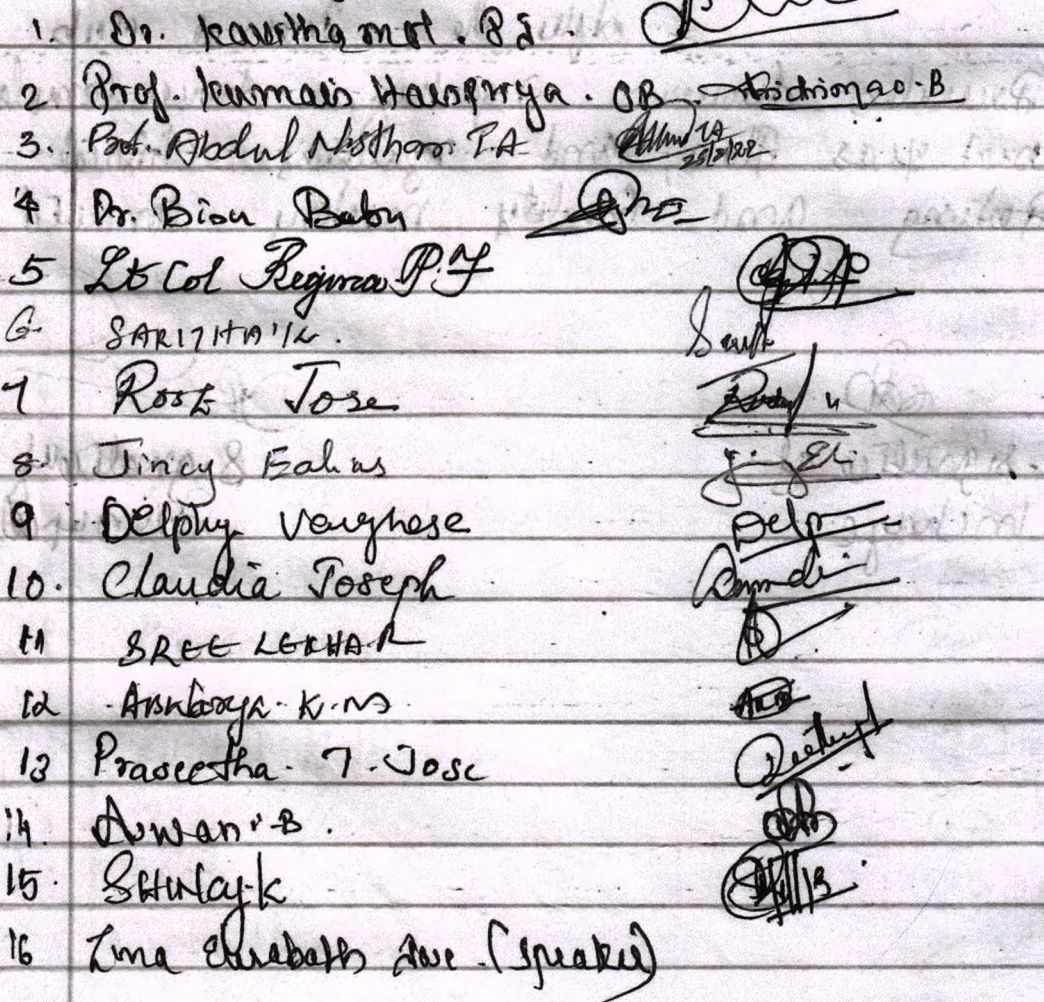 1. Dr. Kavithamol. P S.
2 Prof. Kumari Haripriya. OB
3. Prof. Abdul Nisthar T.A 25/2/22
4 Dr. Binu Babu
5 Lt Col Regina P.F
6. SARITHA
7 Rose Jose
8. Jincy Ealias
9 Delphy Varghese
10. Claudia Joseph
11 SREE LEKHA R
12 Aiswarya. K. N
13 Praseetha. T. Jose
14. B.
15. SHINCY.K
16 Jose. (Speaker)